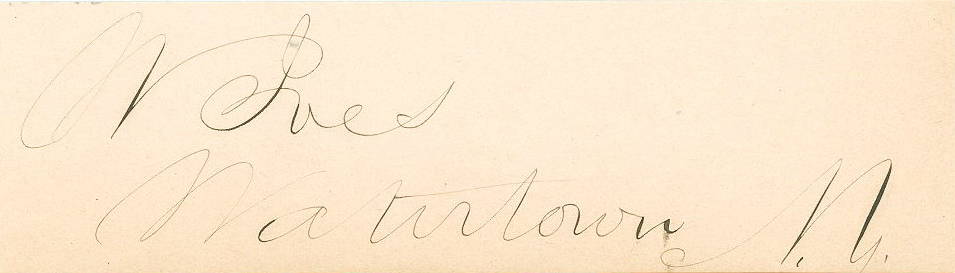 W Ives
Watertown, N.Y.